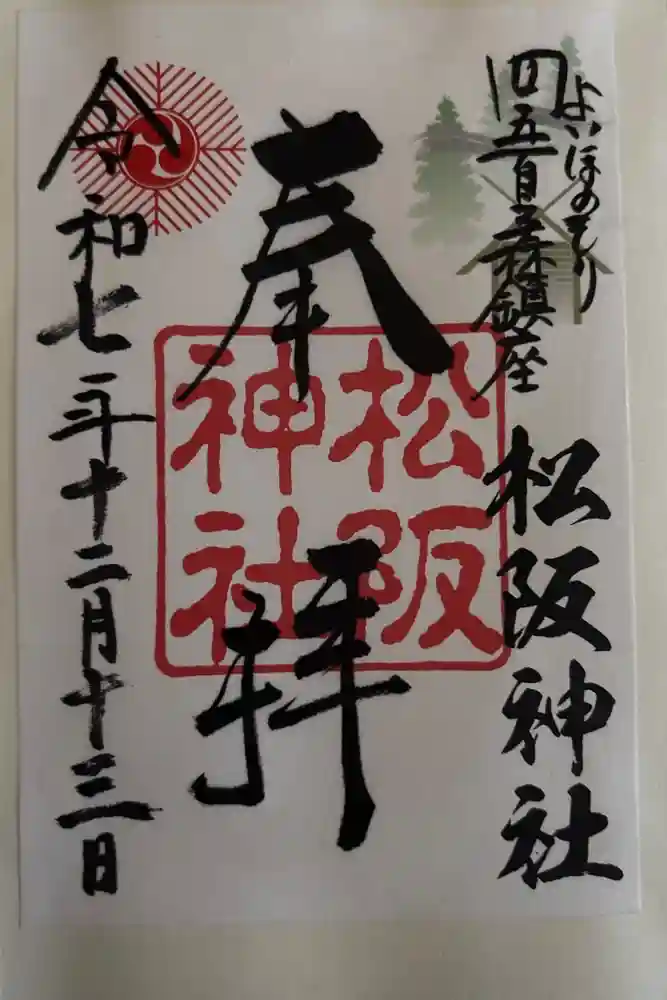 よいほのもり
四五百森鎮座
松阪神社
奉拝
松阪
神社
令和七年十二月十三日